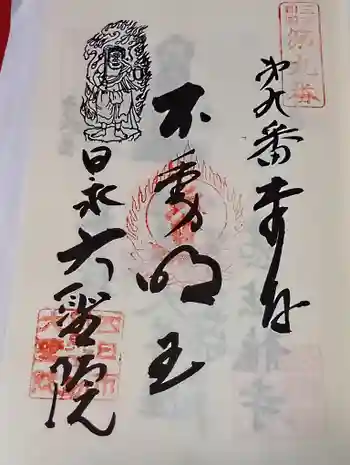 第九番奉拝
不動明王
日永大聖院